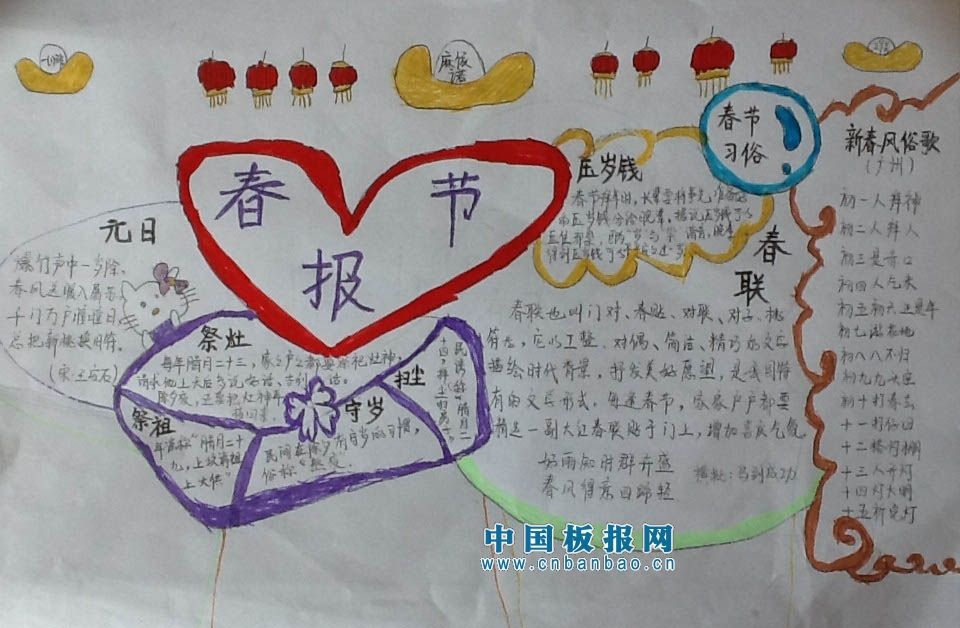 麻依诺
春节报
元日
爆竹声中一岁除,
春风送暖入屠苏
千门万户曈曈日
总把新桃换旧符。
(宋·王安石)
祭灶
每年腊月二十三,家家户户都要祭祀灶神,
除夕夜,还要把灶神再
祭祖
年谚称"腊月二十
九,上坟请祖
上大供"
守岁
民间在除夕有守岁的习惯,
俗称"熬夜"
扫尘
民谚称"腊月二
十四,掸尘扫房子"
压岁钱
春节拜年时,长辈要将事先准备好
的压岁钱分给晚辈,据说压岁钱可以
压住邪祟,因为"岁"与"祟"谐音,晚辈
得到压岁钱可以平平安安过一岁
春节
习俗
春联
春联也叫门对、春贴、对联、对子、桃
符等,它以工整、对偶、简洁、精巧的文字
描绘时代背景,抒发美好愿望,是我国特
有的文学形式,每逢春节,家家户户都要
精选一副大红春联贴于门上,增加喜庆气氛
好雨知时群卉盛
春风得意四蹄轻
横批:马到成功
新春风俗歌
(广州)
初一人拜神
初二人拜人
初三是赤口
初四人乞米
初五初六正是年
初七
初八八不归
初九九头空
初十打春去
十一打仔回
十二搭灯棚
十三人开灯
十四灯火明
十五祈完灯
中国板报网
www.cnbanbao.cn